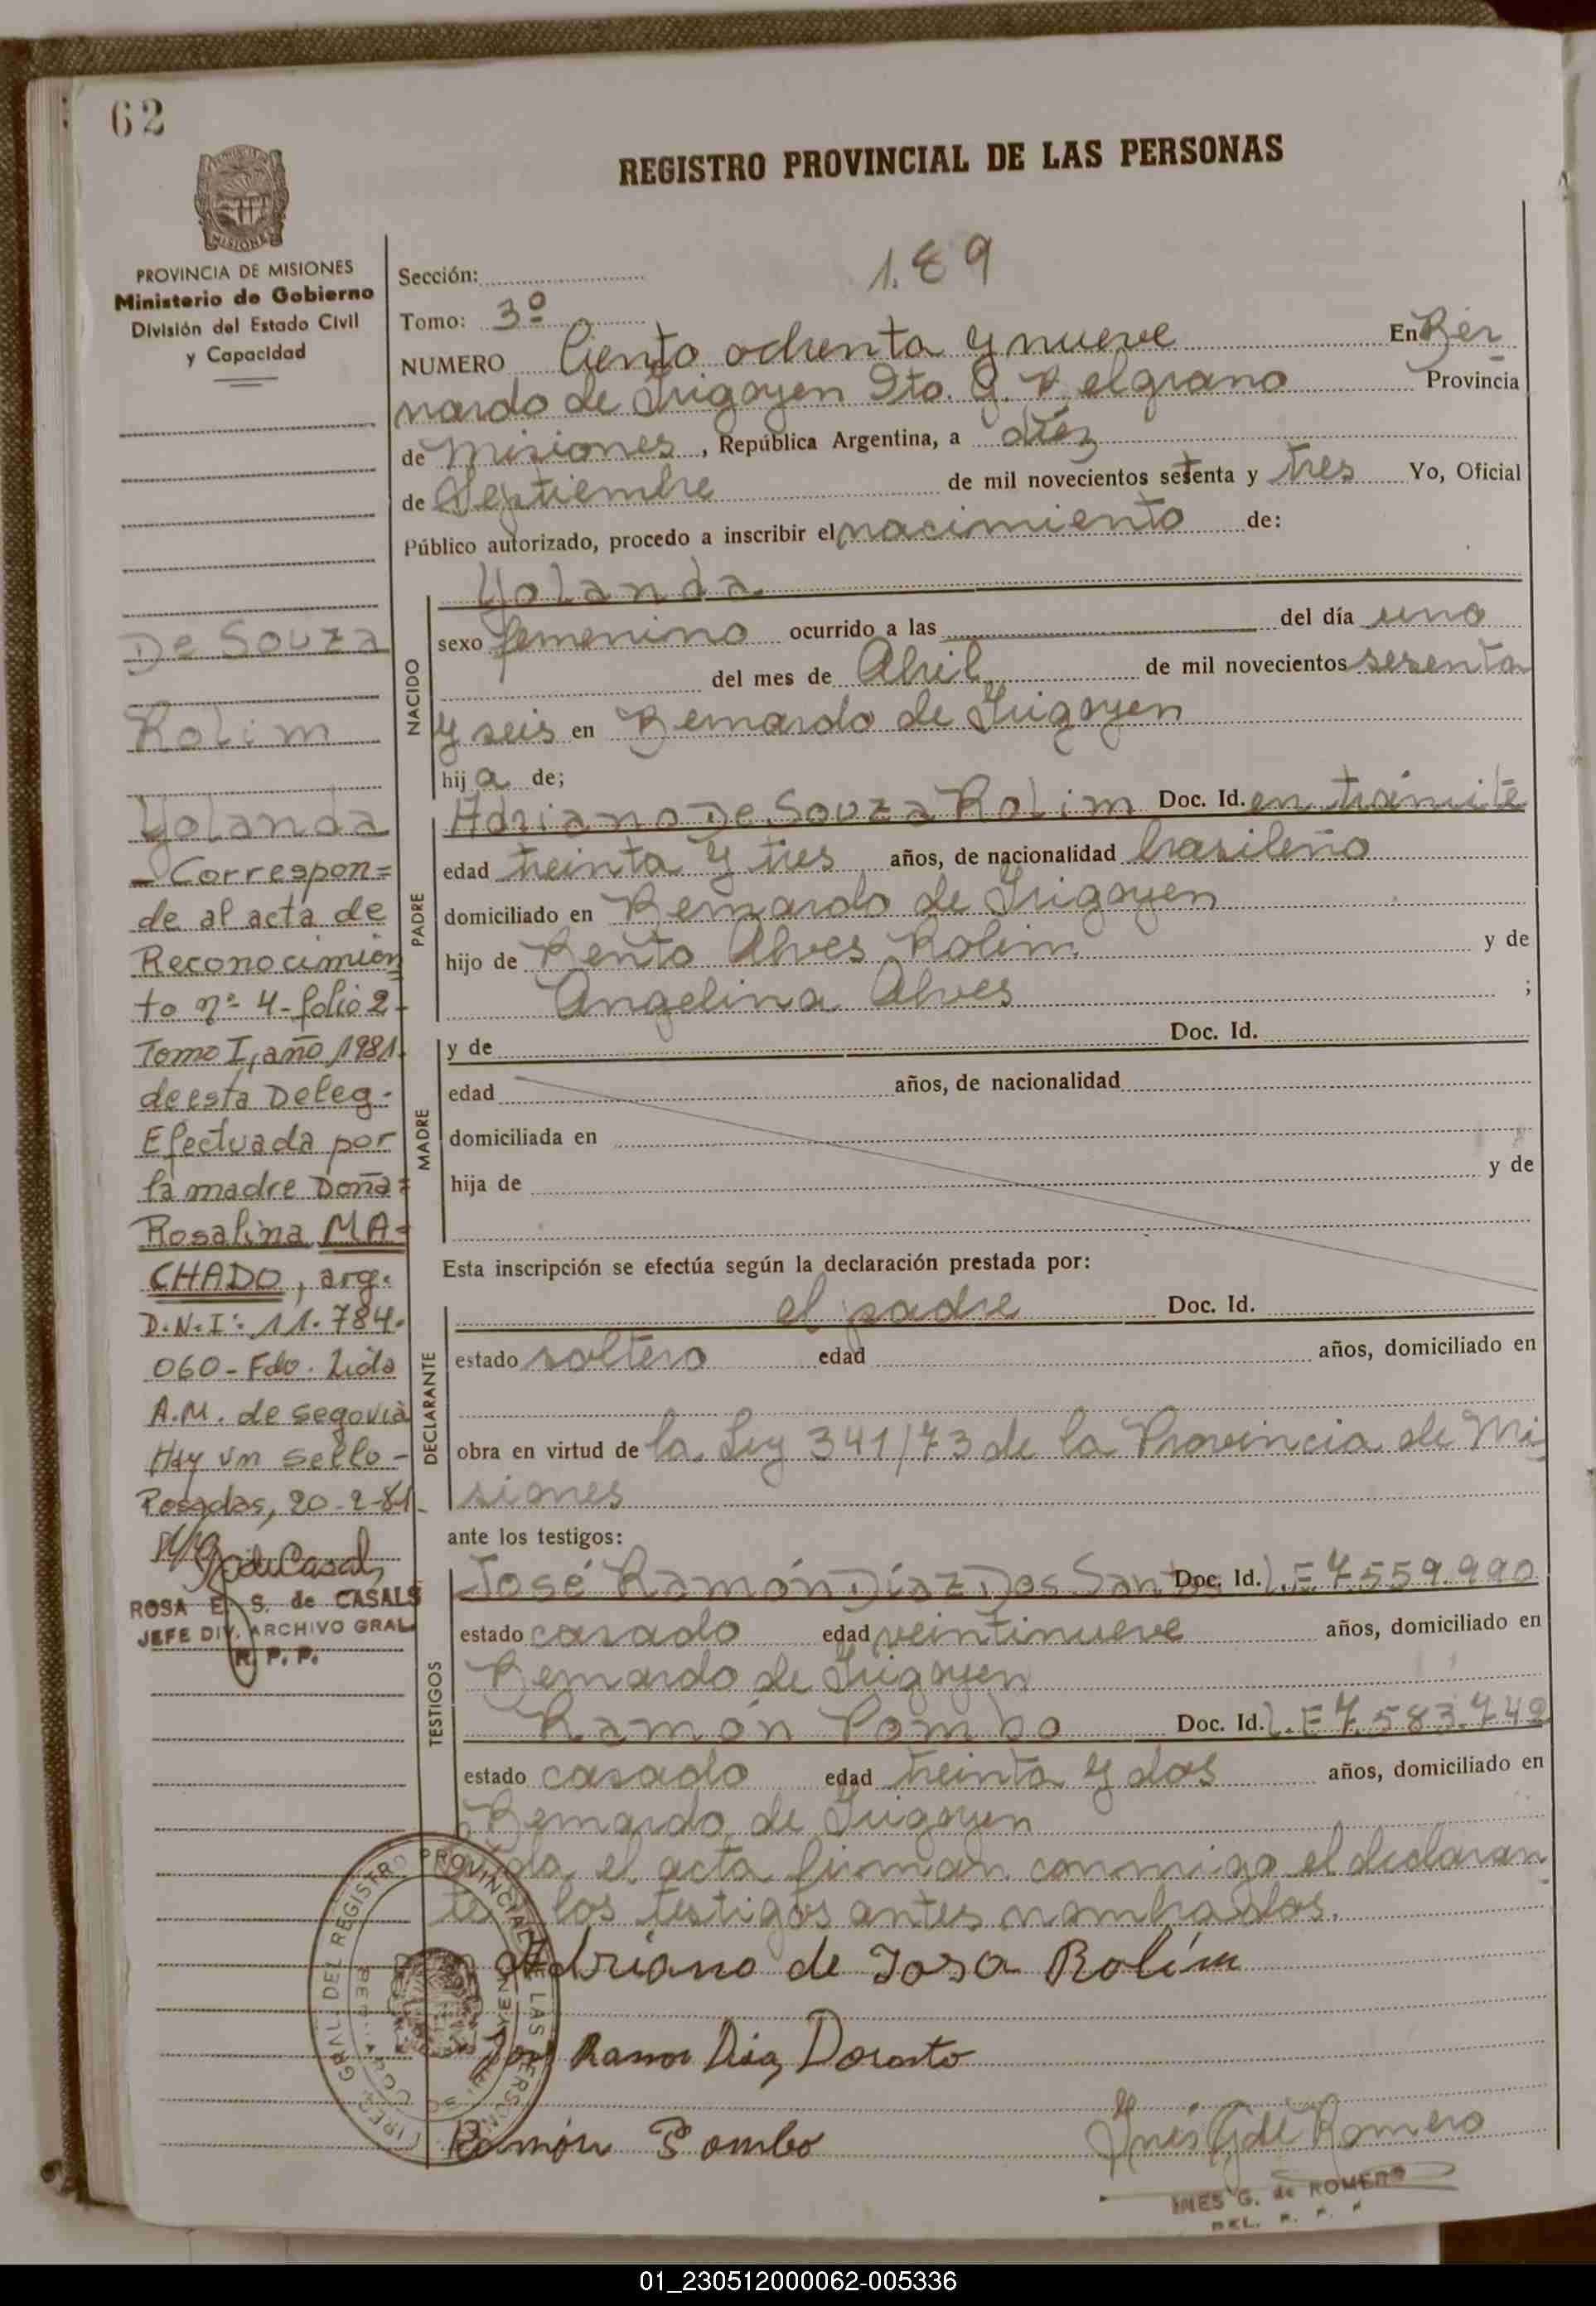 62
REGISTRO PROVINCIAL DE LAS PERSONAS
MISIONES
PROVINCIA DE MISIONES
Ministerio de Gobierno
División del Estado Civil
y Capacidad
De Souza
Rolim
Yolanda
- Correspon=
de al acta de
Reconocimien
to nº 4-folio 2-
Tomo I, año 1981.
de esta Deleg.
Efectuada por
la madre Doña=
Rosalina MA=
CHADO, arg.
D.N.I: 11.784.
060- Fdo. Lida
A.M. de Segovia
Hay un sello-
Posadas, 20-2-81-
ROSA E. S. de CASALS
JEFE DIV. ARCHIVO GRAL
R. P. P.
189
Sección:
Tomo: 3º
NUMERO Ciento ochenta y nueve En Ber
nardo de Irigoyen Dto. G. Belgrano Provincia
de Misiones, República Argentina, a diez
de Septiembre de mil novecientos setenta y tres Yo, Oficial
Público autorizado, procedo a inscribir el nacimiento de:
NACIDO
Yolanda
sexo femenino ocurrido a las del día uno
del mes de Abril de mil novecientos sesenta
y seis en Bernardo de Irigoyen
hija de;
PADRE
Adriano De Souza Rolim Doc. Id. en trámite
edad treinta y tres años, de nacionalidad brasileño
domiciliado en Bernardo de Irigoyen
hijo de Bento Alves Rolim y de
Angelina Alves ;
MADRE
y de Doc. Id.
edad años, de nacionalidad
domiciliada en
hija de y de
Esta inscripción se efectúa según la declaración prestada por:
DECLARANTE
el padre Doc. Id.
estado soltero edad años, domiciliado en
obra en virtud de la Ley 341/73 de la Provincia de Mi
siones
ante los testigos:
TESTIGOS
José Ramón Díaz Dos Santos Doc. Id. L.E 7.559.990
estado casado edad veintinueve años, domiciliado en
Bernardo de Irigoyen
Ramón Pombo Doc. Id. L.E 7.583.742
estado casado edad treinta y dos años, domiciliado en
Bernardo de Irigoyen
el acta firman conmigo el declaran
te los testigos antes nombrados.
Adriano de Sosa Rolím
José Ramon Diaz Dosanto
Ramón Pombo
Inés G de Romero
INES G. de ROMERO
DEL. R. P. P.
01_230512000062-005336